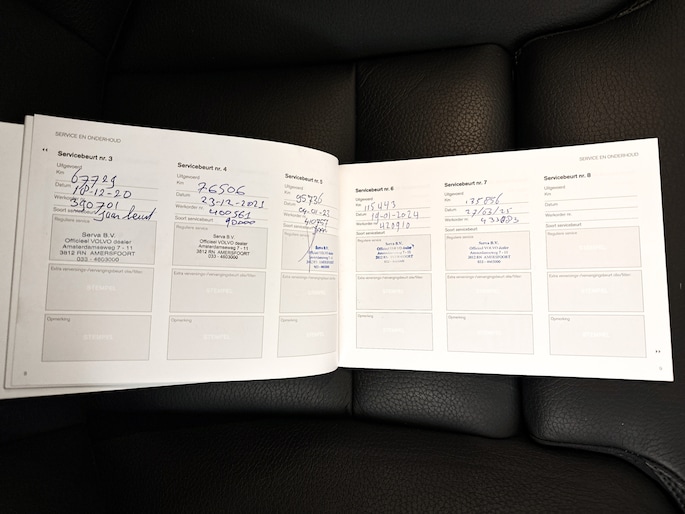 SERVICE EN ONDERHOUD
Servicebeurt nr. 3
Uitgevoerd
Km 67729
Datum 18-12-20
Werkorder nr. 390701
Soort servicebeurt Jaar beurt
Reguliere service
Serva B.V.
Officieel VOLVO dealer
Amsterdamseweg 7 - 11
3812 RN AMERSFOORT
033 - 4603000
Extra verversings-/vervangingsbeurt olie/filter
STEMPEL
Opmerking
STEMPEL
8
Servicebeurt nr. 4
Uitgevoerd
Km 76506
Datum 23-12-2021
Werkorder nr. 400561
Soort servicebeurt 90000
Reguliere service
Serva B.V.
Officieel VOLVO dealer
Amsterdamseweg 7 - 11
3812 RN AMERSFOORT
033 - 4603000
Extra verversings-/vervangingsbeurt olie/filter
STEMPEL
Opmerking
STEMPEL
Servicebeurt nr. 5
Uitgevoerd
Km 95736
Datum
Werkorder nr.
Soort servicebeurt
Reguliere service
Serva B.V.
Officieel VOLVO dealer
Amsterdamseweg 7 - 11
3812 RN AMERSFOORT
033 - 4603000
Extra verversings-/vervangingsbeurt
Opmerking
SERVICE EN ONDERHOUD
Servicebeurt nr. 6
Uitgevoerd
Km 115443
Datum 19-01-2024
Werkorder nr. 420910
Soort servicebeurt
Reguliere service
Serva B.V.
Officieel VOLVO dealer
Amsterdamseweg 7 - 11
3812 RN AMERSFOORT
033 - 4603000
Extra verversings-/vervangingsbeurt olie/filter
STEMPEL
Opmerking
STEMPEL
Servicebeurt nr. 7
Uitgevoerd
Km 135856
Datum 27/03/25
Werkorder nr. 432083
Soort servicebeurt
Reguliere service
Serva B.V.
Officieel VOLVO dealer
Amsterdamseweg 7 - 11
3812 RN AMERSFOORT
033 - 4603000
Extra verversings-/vervangingsbeurt olie/filter
STEMPEL
Opmerking
STEMPEL
Servicebeurt nr. 8
Uitgevoerd
Km
Datum
Werkorder nr.
Soort servicebeurt
Reguliere service
STEMPEL
Extra verversings-/vervangingsbeurt olie/filter
STEMPEL
Opmerking
STEMPEL